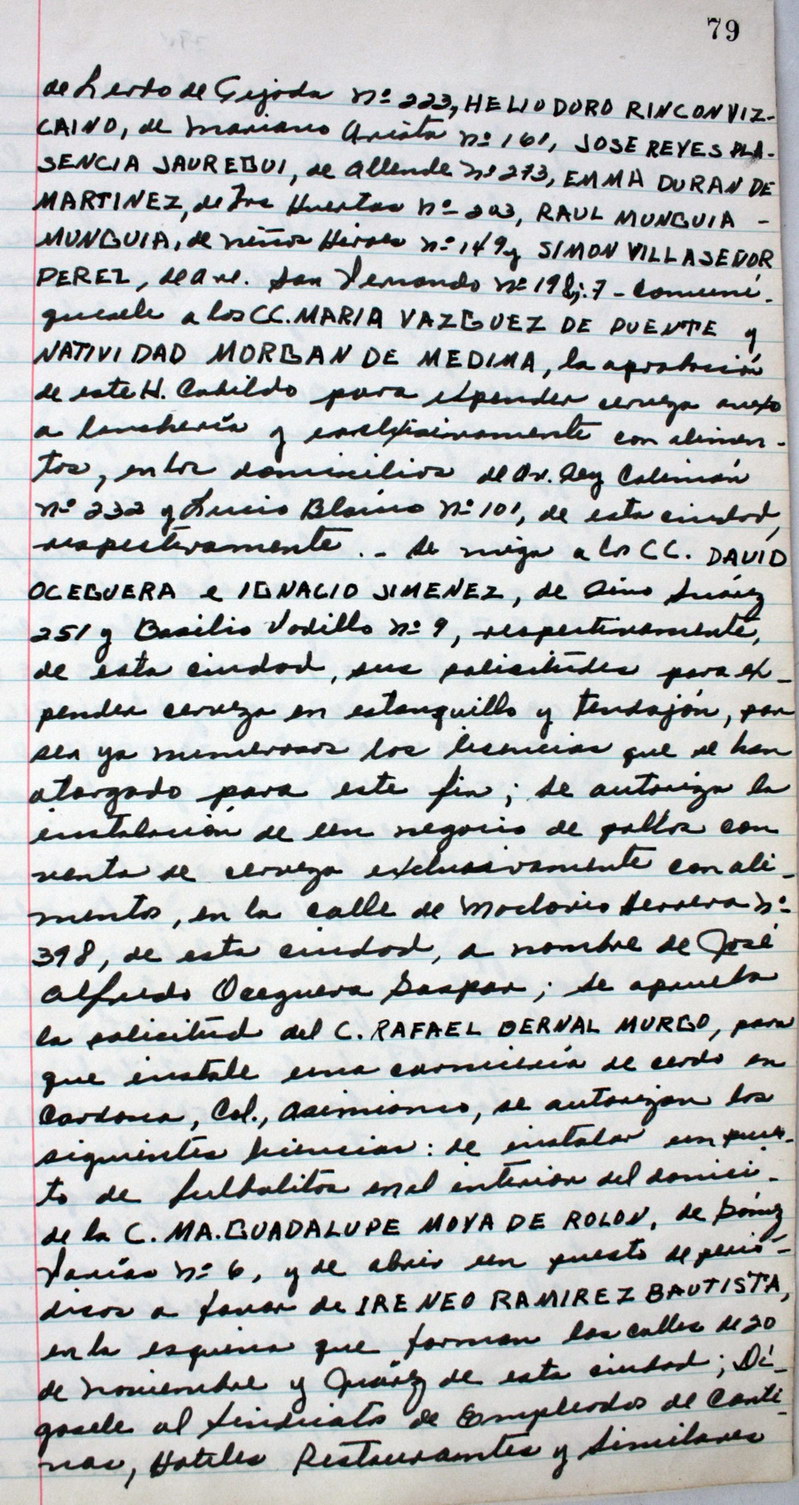 79
de Lerdo de Tejada Nº 223, HELIODORO RINCON VIZ-
CAINO, de Mariano Arista Nº 161, JOSE REYES PLA-
SENCIA JAUREGUI, de Allende Nº 273, EMMA DURAN DE
MARTINEZ, de Las Huertas Nº 203, RAUL MUNGUIA -
MUNGUIA, de Niños Héroes Nº 149 y SIMON VILLASEÑOR
PEREZ, de Ave. San Fernando Nº 198;.7 - Comuní-
quesele a los CC. MARIA VAZGUEZ DE PUENTE y
NATIVIDAD MORGAN DE MEDINA, la aprobación
de este H. Cabildo para expender cerveza anexo
a lonchería y exclusivamente con alimen-
tos, en los domicilios de Av. Rey Colimán
Nº 232 y Lucio Blanco Nº 101, de esta ciudad,
respectivamente. - Se niega a los CC. DAVID
OCEGUERA e IGNACIO JIMENEZ, de Pino Suárez
251 y Basilio Vadillo Nº 9, respectivamente,
de esta ciudad, sus solicitudes para ex-
pender cerveza en estanquillo y tendajón, por
ser ya numerosos las licencias que se han
otorgado para este fin; se autoriza la
instalación de un negocio de pollos con
venta de cerveza exclusivamente con ali-
mentos, en la calle de Maclovio Herrera Nº
398, de esta ciudad, a nombre de José
Alfredo Oceguera Gaspar; se aprueba
la solicitud del C. RAFAEL BERNAL MURGO, para
que instale una carnicería de cerdo en
Cardona, Col., Asimismo, se autorizan las
siguientes licencias: de instalar un pues-
to de futbolitos en el interior del domici-
de la C. MA. GUADALUPE MOYA DE ROLON, de Gómez
Farías Nº 6, y de abrir un puesto de perió-
dicos a favor de IRENEO RAMIREZ BAUTISTA,
en la esquina que forman las calles de 20
de Noviembre y Juárez de esta ciudad; Dí-
gasele al Sindicato de Empleados de Canti-
nas, Hoteles Restaurantes y Similares